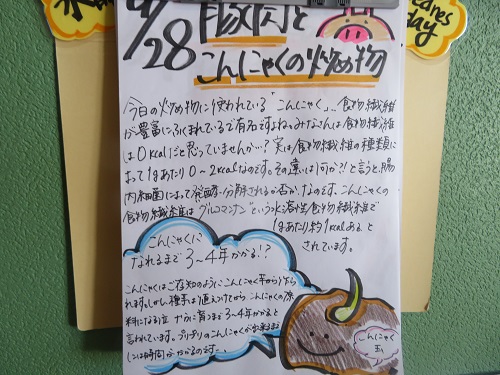 9/28 豚肉と
こんにゃくの炒め物
Wednes
day
今日の炒め物に使われている「こんにゃく」、食物繊維
が豊富にふくまれているで有名ですよね。みなさんは食物繊維
は0kcalだと思っていませんか…?実は食物繊維の種類に
よって1gあたり0～2kcalなのです。その違いは何か?!と言うと、腸
内細菌によって発酵・分解されるか否かなのです。こんにゃくの
食物繊維は"グルコマンナン"という水溶性食物繊維で
1gあたり約1kcalあると
されています。
こんにゃくに
なれるまで3～4年かかる!?
こんにゃくはご存知のようにこんにゃく芋から作ら
れます。しかし、種芋は植えつけてからこんにゃくの原
料になる位大きく育つまで3～4年かかると
言われています。プリプリのこんにゃくが出来るまで
には時間がかかるのです…。
こんにゃく
玉